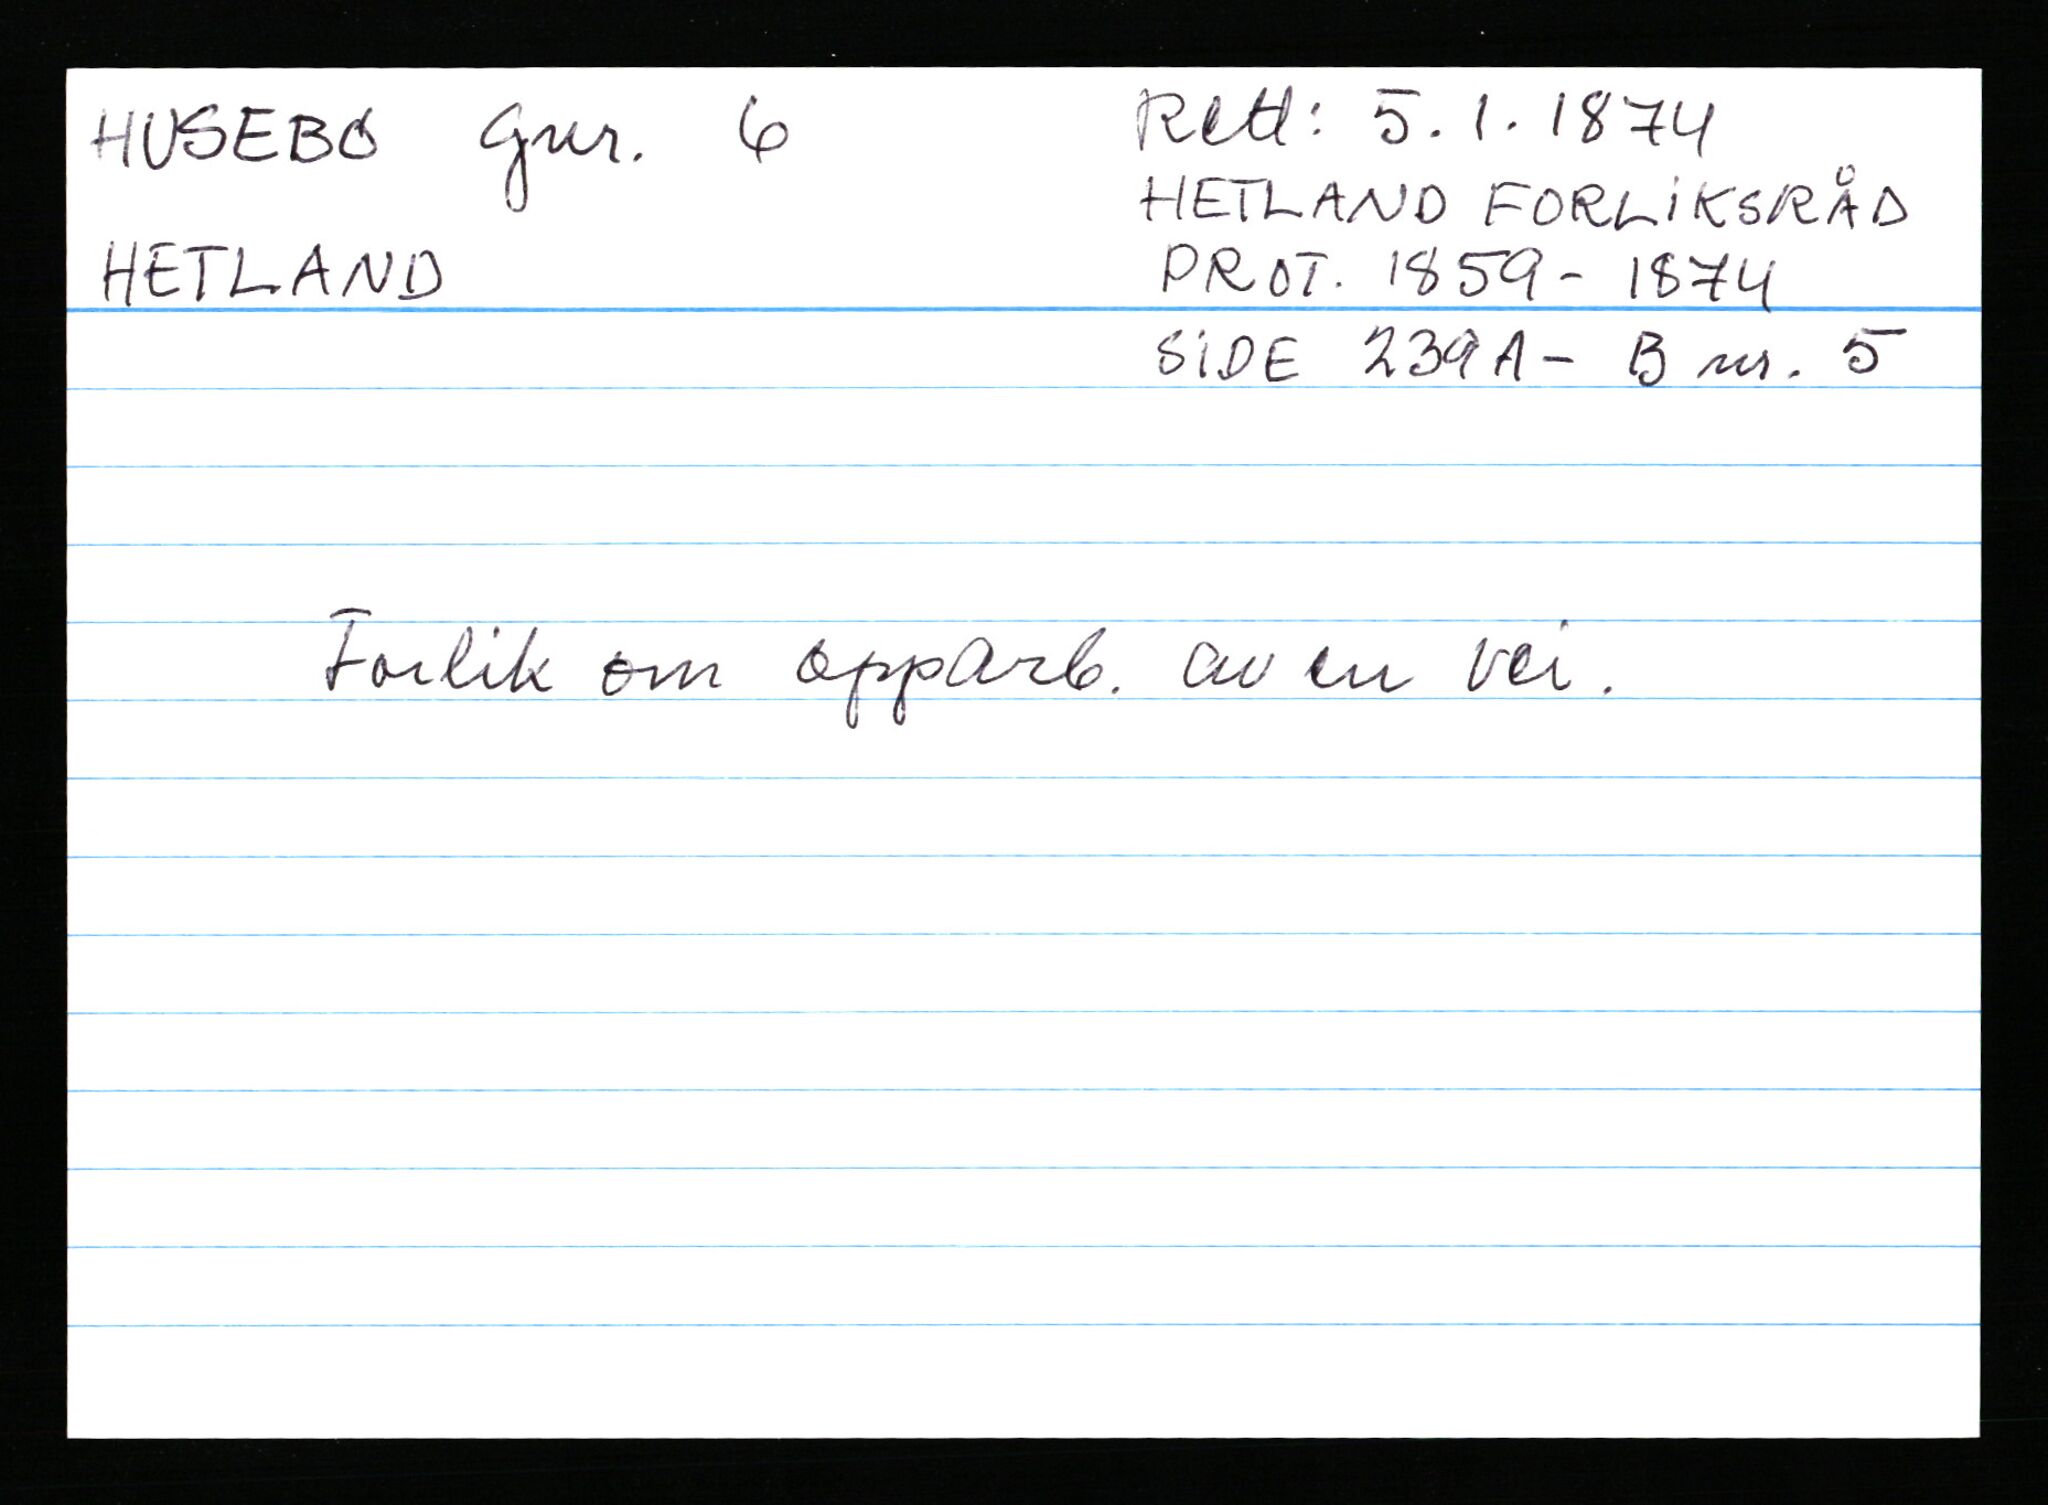 HUSEBØ Gnr. 6
HETLAND
Rett: 5.1.1874
HETLAND FORLIKSRÅD
PROT. 1859-1874
SIDE 239A-B nr. 5
Forlik om opparb. av en vei.